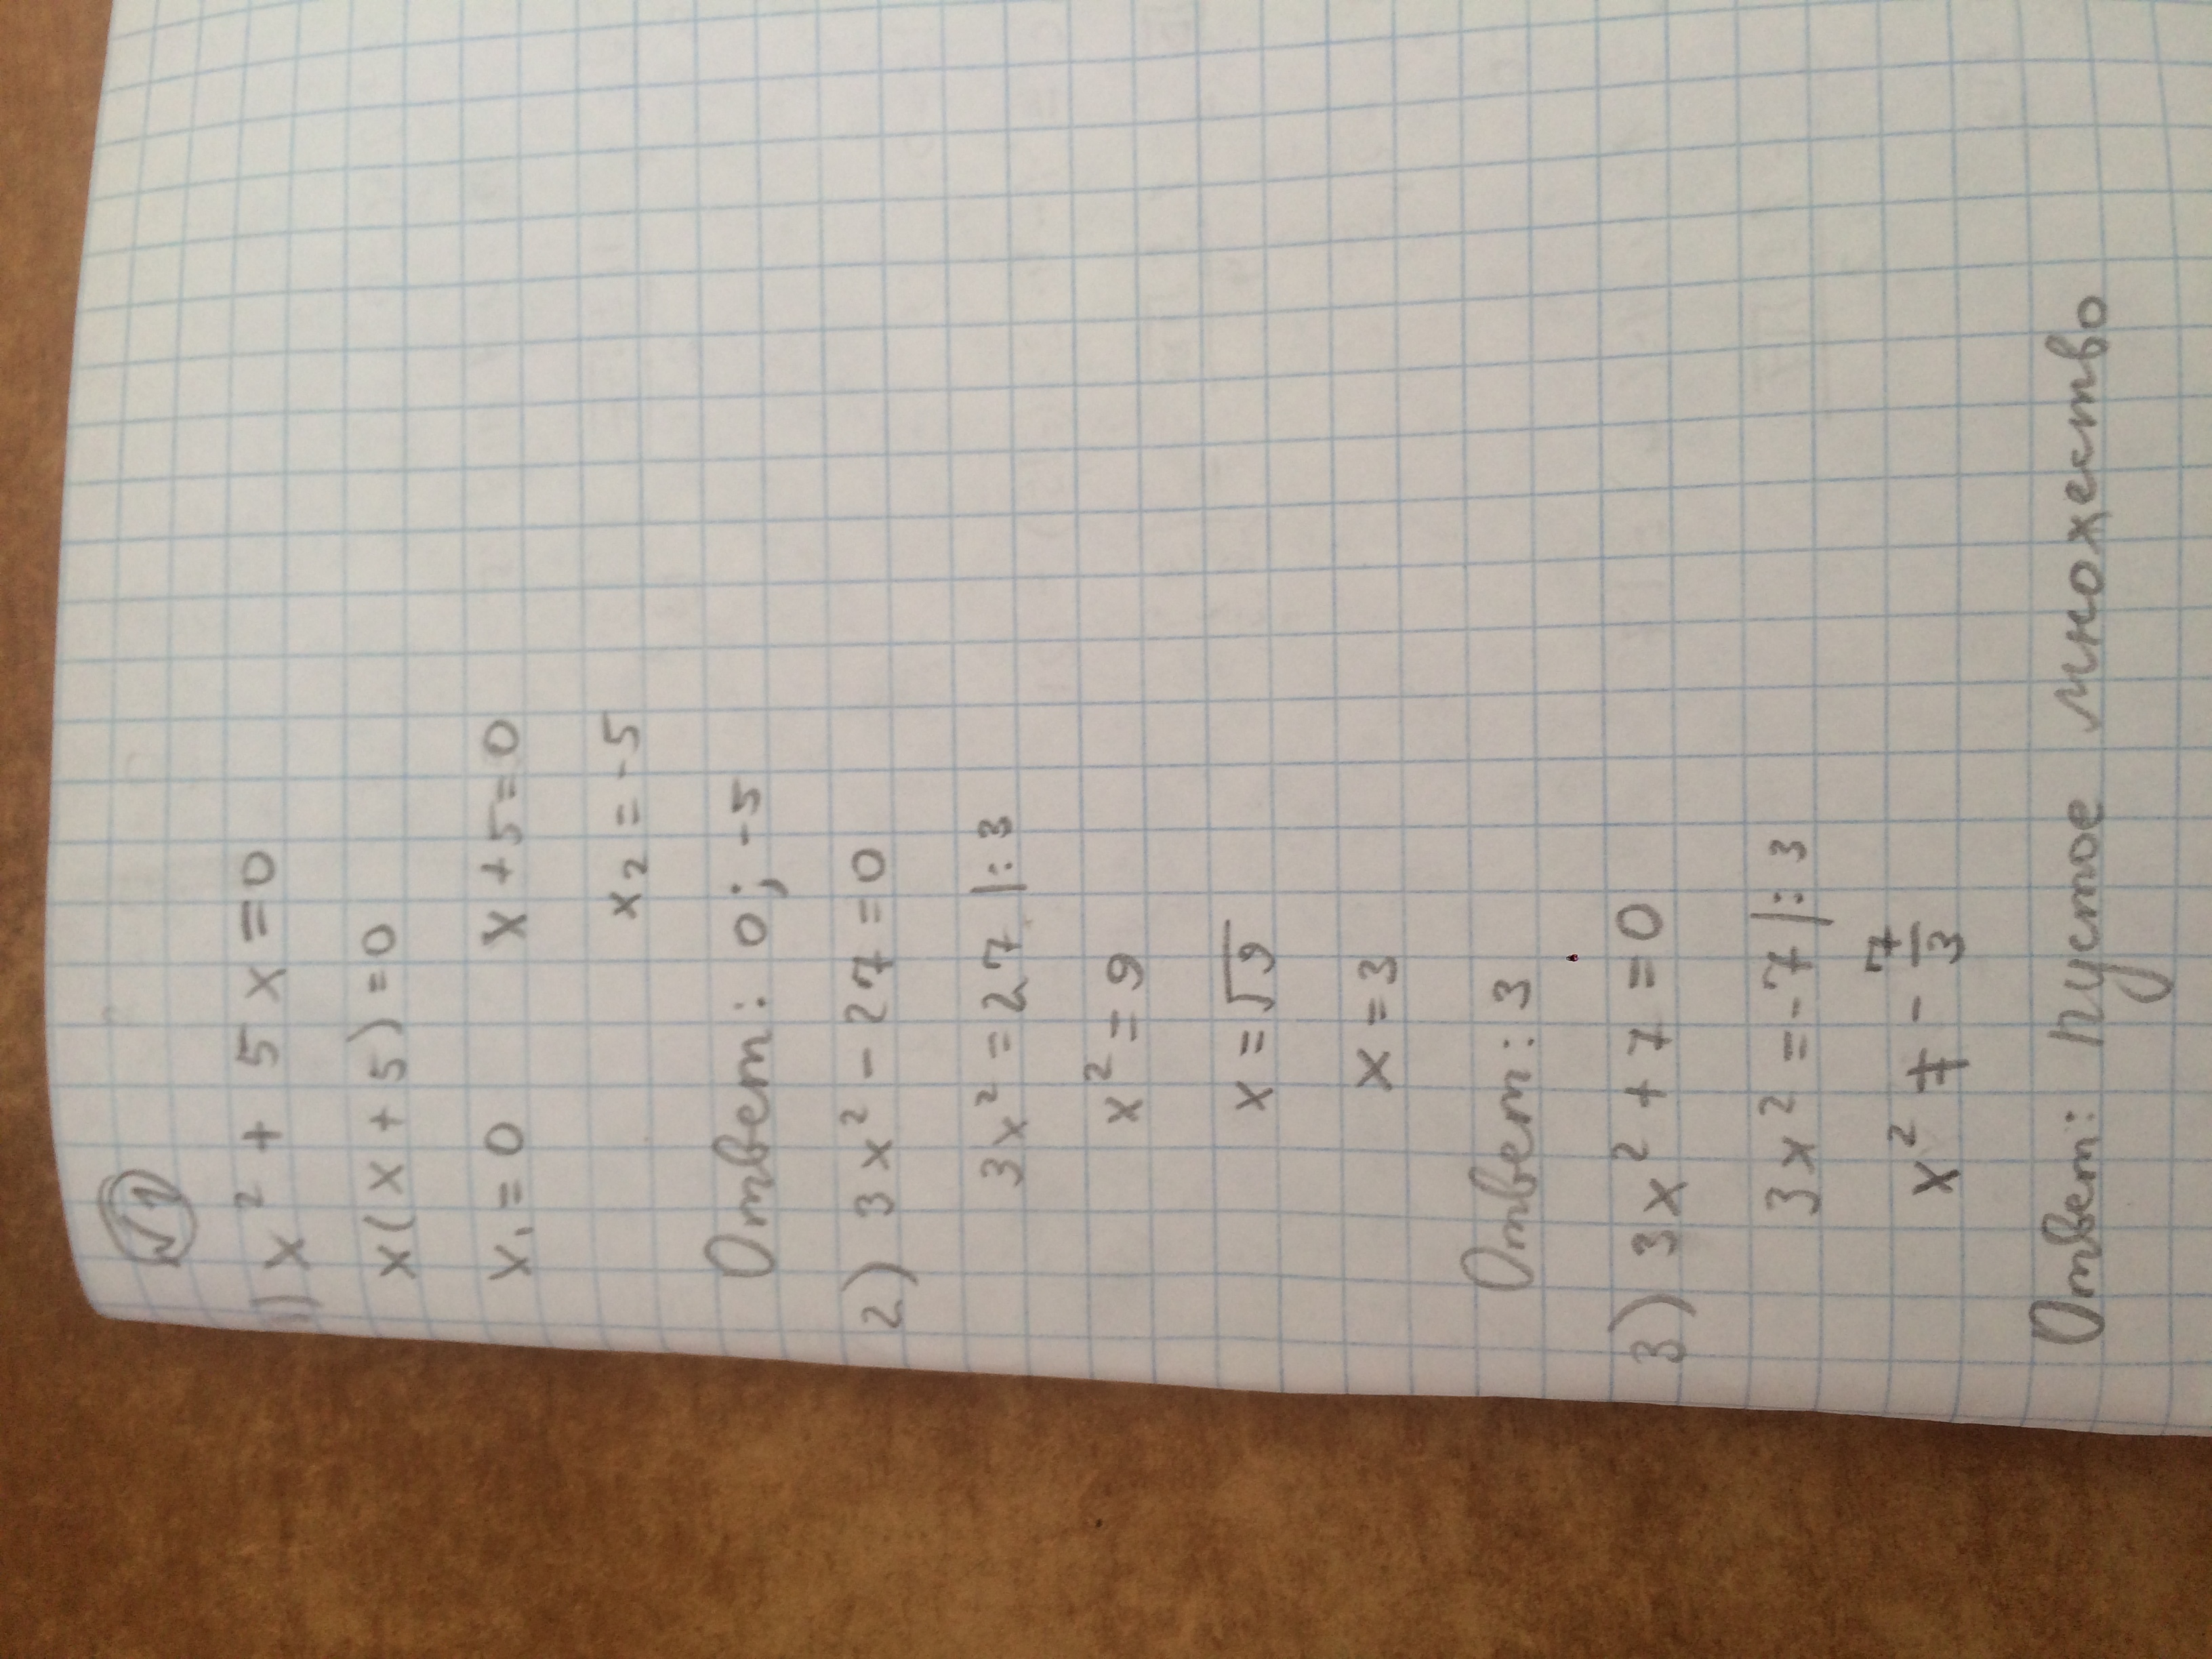 √1
1) x² + 5x = 0
x(x + 5) = 0
x₁ = 0 x + 5 = 0
x₂ = -5
Ответ: 0; -5
2) 3x² - 27 = 0
3x² = 27 |:3
x² = 9
x = √9
x = 3
Ответ: 3
3) 3x² + 7 = 0
3x² = -7 |:3
x² ≠ - 7/3
Ответ: пустое множество